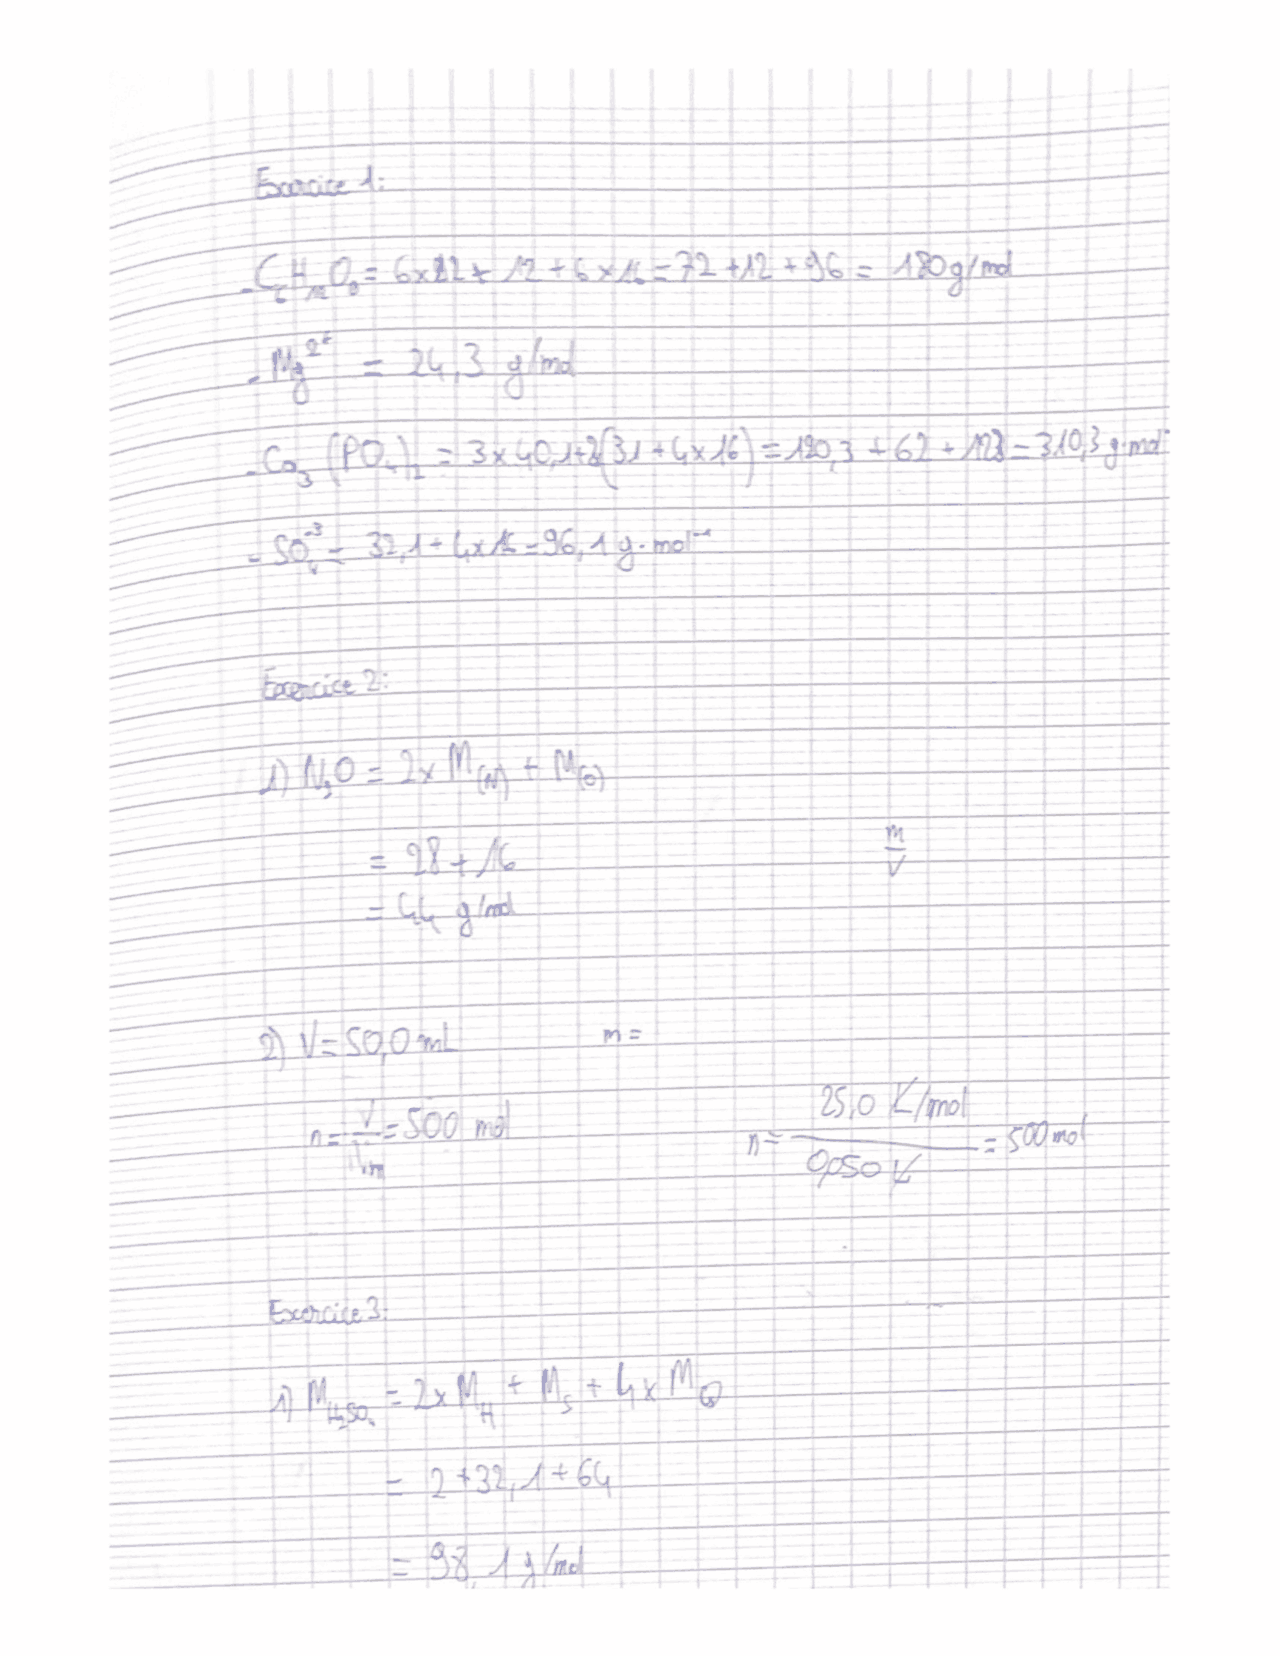 Exercice 1:
- C₆H₁₂O₆ = 6×12 + 12 + 6×16 = 72 + 12 + 96 = 180 g/mol
- Mg²⁺ = 24,3 g/mol
- Ca₃(PO₄)₂ = 3×40,1+2(31+4×16) = 120,3 + 62 + 128 = 310,3 g·mol⁻
- SO₄⁻³ = 32,1 + 4×16 = 96,1 g·mol⁻¹
Exercice 2:
1) N₂O = 2× M(N) + M(O)
= 28 + 16
m/V
= 44 g/mol
2) V = 50,0 mL m =
n = V/Vm = 500 mol n = 25,0 L/mol / 0,050 L = 500 mol
Exercice 3:
1) M H₂SO₄ = 2× M H + M S + 4× M O
= 2 + 32,1 + 64
= 98,1 g/mol